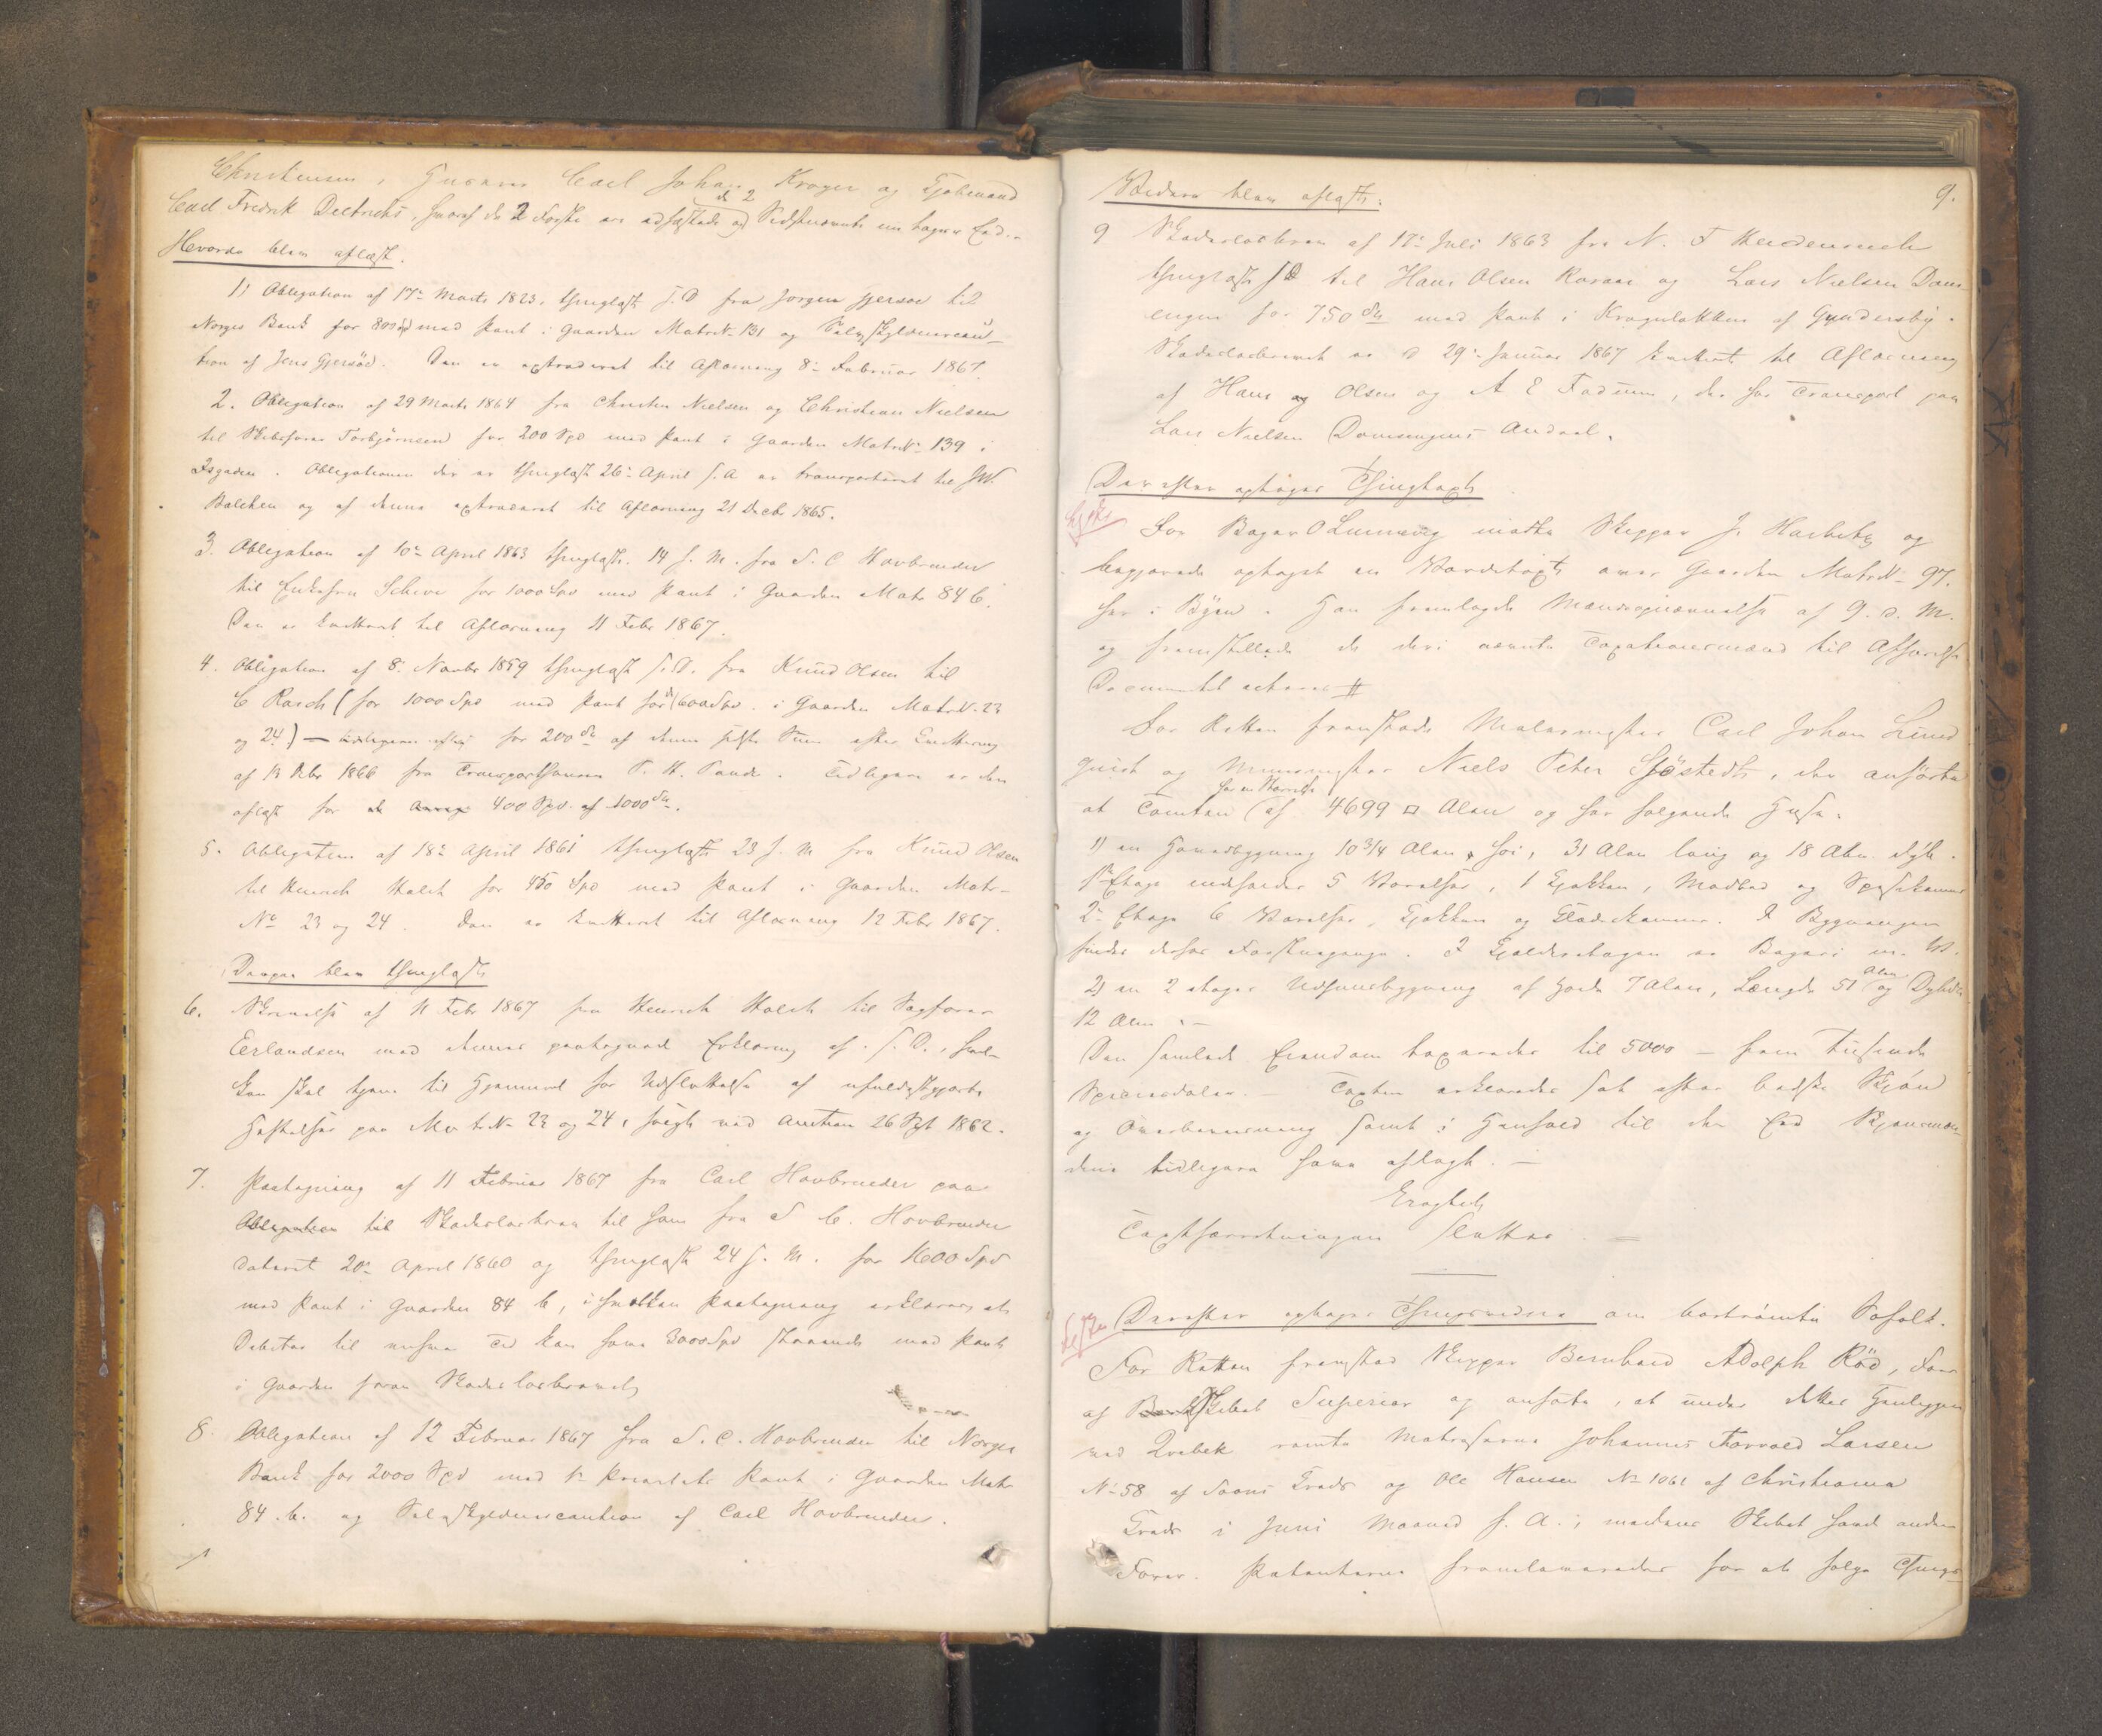 Christensen, Carl Johan Krøger og
de 2
Carl Fredrik Dietrichs, hvoraf de 2 Første ere edfæstede og Sidstnævnte nu tager Eed.-
Hvorda blev aflæst.
1) Obligation af 17de Marts 1823, thinglæst s. D fra Jørgen Gjersøe til
Norges Bank for 800 Spd med Pant i Gaarden Matr. N. 131 og Selvskyldnercau-
tion af Jens Gjersöe. Den er extraderet til Aflæsning 8de Februar 1867.
2. Obligation af 29 Marts 1864 fra Christen Nielsen og Christian Nielsen
til Skibsfører Torbjørnsen for 200 Spd med Pant i Gaarden Matr. N. 139 i
. Obligationen der er thinglæst 26de April s. A er transporteret til
Balchen og af denne extraderet til Aflæsning 21 Decbr 1865.
3. Obligation af 10de April 1863 thinglæst 14 s. M. fra S. C. Hovbrender
til Enkefru Schive for 1000 Spd med Pant i Gaarden Matr 84 b.
Den er kvitteret til Aflæsning 11 Febr 1867.
4. Obligation af 8de Novbr 1859 thinglæst s. D. fra Knud Olsen til
C Rasch (for 1000 Spd med Pant for 600 Spd. i Gaarden Matr. N. 23
og 24) — for 200 Spd af denne sidste Sum efter Kvittering
af 13 Febr 1866 fra Transporthaveren P. H. . Tidligere er den
aflæst for 400 Spd. af 1000 Spd.
5. Obligation af 18de April 1861 thinglæst 23 s. M fra Knud Olsen
til Henrich Holst for 450 Spd med Pant i Gaarden Matr-
No 23 og 24. Den er kvitteret til Aflæsning 12 Febr 1867.
Derpaa blev thinglæst
6. Skrivelse af 11 Febr 1867 fra Henrich Holst til Sagfører
Erlandsen med dennes paategnede Erklæring af s. D., hvil-
ken skal tjene til Hjemmel for Udslettelse af ufuldstgjorte
Heftelser paa Matr N 23 og 24, solgt ved Auction 26 Sept 1862.
7. Paategning af 11 Februar 1867 fra Carl Hovbrender paa
Obligation til Skadesløsbrev til ham fra S. C. Hovbrender
dateret 20de April 1860 og thinglæst 24 s. M. for 1600 Spd
med Pant i Gaarden 84 b, i hvilken Paategning erklæres at
Debitor til enhver Tid kan have 3000 Spd staaende med Pant
i Gaarden foran Skadesløsbrevet
8. Obligation af 12 Februar 1867 fra S. C. Hovbrender til Norges
Bank for 2000 Spd med 1ste Prioritets Pant i Gaarden Matr
84. b. og Selvskyldnercaution af Carl Hovbrender.
9.
Videre blev aflæst:
9 Skadesløsbrev af 17de Juli 1863 fra N. F
thinglæst s D til Hans Olsen og Lars Nielsen Dom-
engen for 750 Spd med Pant i Krogeløkken af Gundersby.
Skadesløsbrevet er d 29de Januar 1867 kvitteret til Aflæsning
af Hans og Olsen og A E Fadum, der har Transport paa
Lars Nielsen Domengens Andeel.
Derefter optoges Thingtaxt
For Bager O Lumeng mødte Skipper J. Harbitz og
begjærede optaget en Værdetaxt over Gaarden Matr N 97.
her i Byen. Han fremlagde Mandsopnævnelse af 9. d. M.
og fremstillede de deri nævnte Taxationsmænd til Afhørelse
Documentet acteres #
For Retten fremstode Malermester Carl Johan Lind
quist og Muurmester Niels Peter Sjöstedt, der anførte
har en Størrelse
at Tomten af 4699 □ Alen og har følgende Huse.
1) en Hovedbygning 10 3/4 Alen høi, 31 Alen lang og 18 Alen dyb.
1ste Etage indeholder 5 Værelser, 1 Kjøkken, Madbod og Spisekammer
2den Etage 6 Værelser, Kjøkken og . I Bygningen
findes desuden . I Kjelderetagen er Bageri m. M.
2) en 2 etages Udhuusbygning af Høide 7 Alen, Længde 51 Alen og Dybde
12 Alen. —
Den samlede Eiendom taxeredes til 5000 — fem tusinde
Speciedaler. — Taxten erklæredes sat efter bedste Skjön
og Overbeviisning samt i Henhold til den Eed Skjønsmæn-
dene tidligere have aflagt. —
Taxtforretningen sluttes =
Derefter optoges Thingsvidne om bortrömte Søfolk.
For Retten fremstod Skipper Bernhard Adolph Röd, Fører
af Skibet Superior og anførte, at under dettes Henliggen
ved Qvebek rømte Matroserne Johannes Torvald Larsen
No 58 af Soons Krets og Ole Hansen No 1061 af Christiania
Krets i Juni Maaned f. A., medens Skibet havde anden
Fører. Patenterne fremlevereredes for at følge Things-